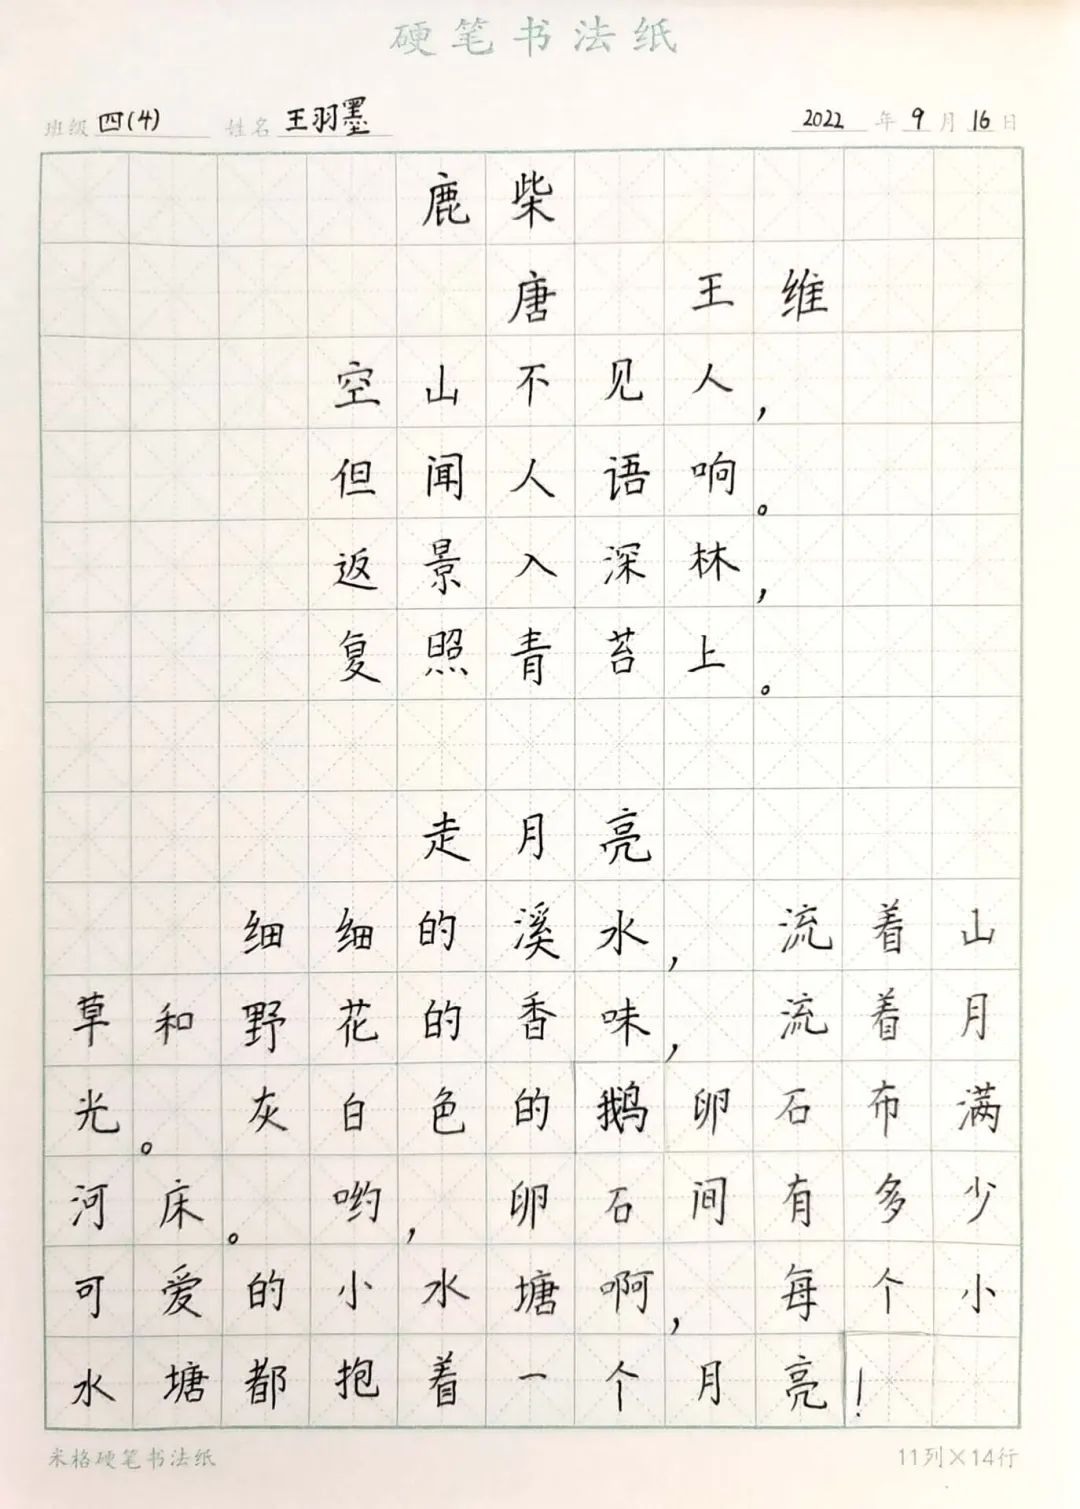 硬笔书法纸
班级 四(4) 姓名 王羽墨 2022 年 9 月 16 日
鹿柴
唐 王维
空山不见人，
但闻人语响。
返景入深林，
复照青苔上。
走月亮
细细的溪水，流着山
草和野花的香味，流着月
光。灰白色的鹅卵石布满
河床。哟，卵石间有多少
可爱的小水塘啊，每个小
水塘都抱着一个月亮！
米格硬笔书法纸 11列×14行